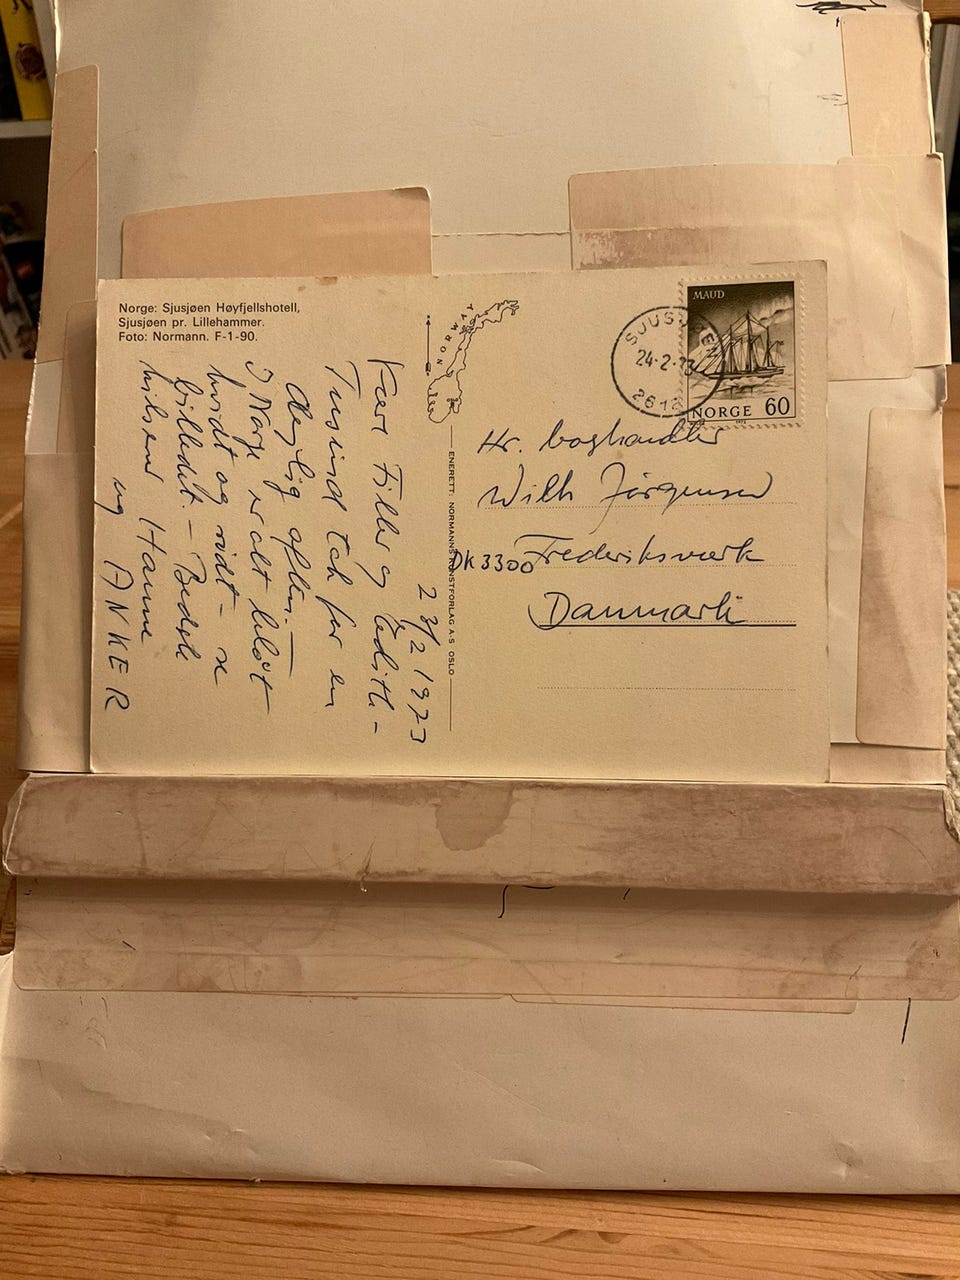 Norge: Sjusjøen Høyfjellshotell,
Sjusjøen pr. Lillehammer.
Foto: Normann. F-1-90.
NORWAY
ENERETT: NORMANNS KUNSTFORLAG A·S OSLO
MAUD
NORGE 60
SJUSJØEN
24-2-73
2612
23/2 1973
Kære Filler og Edith-
Tusind tak for en
dejlig aften.—
I Norge er alt blåt
hvidt og rødt – se
billedet. – Bedste
hilsner Hanne
og ANKER
Hr. boghandler
Wilh Jörgensen
DK 3300 Frederiksværk
Danmark